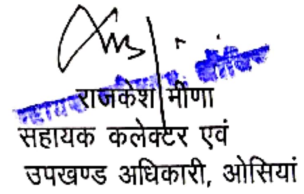 राजकेश मीणा
सहायक कलेक्टर एवं
उपखण्ड अधिकारी, ओसियां